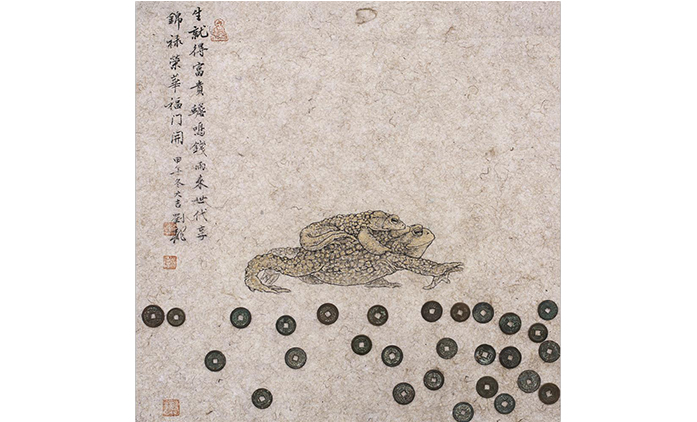 生就得富貴蟾鳴錢雨來世代享
錦祿榮華福门開 甲午冬大吉 劉